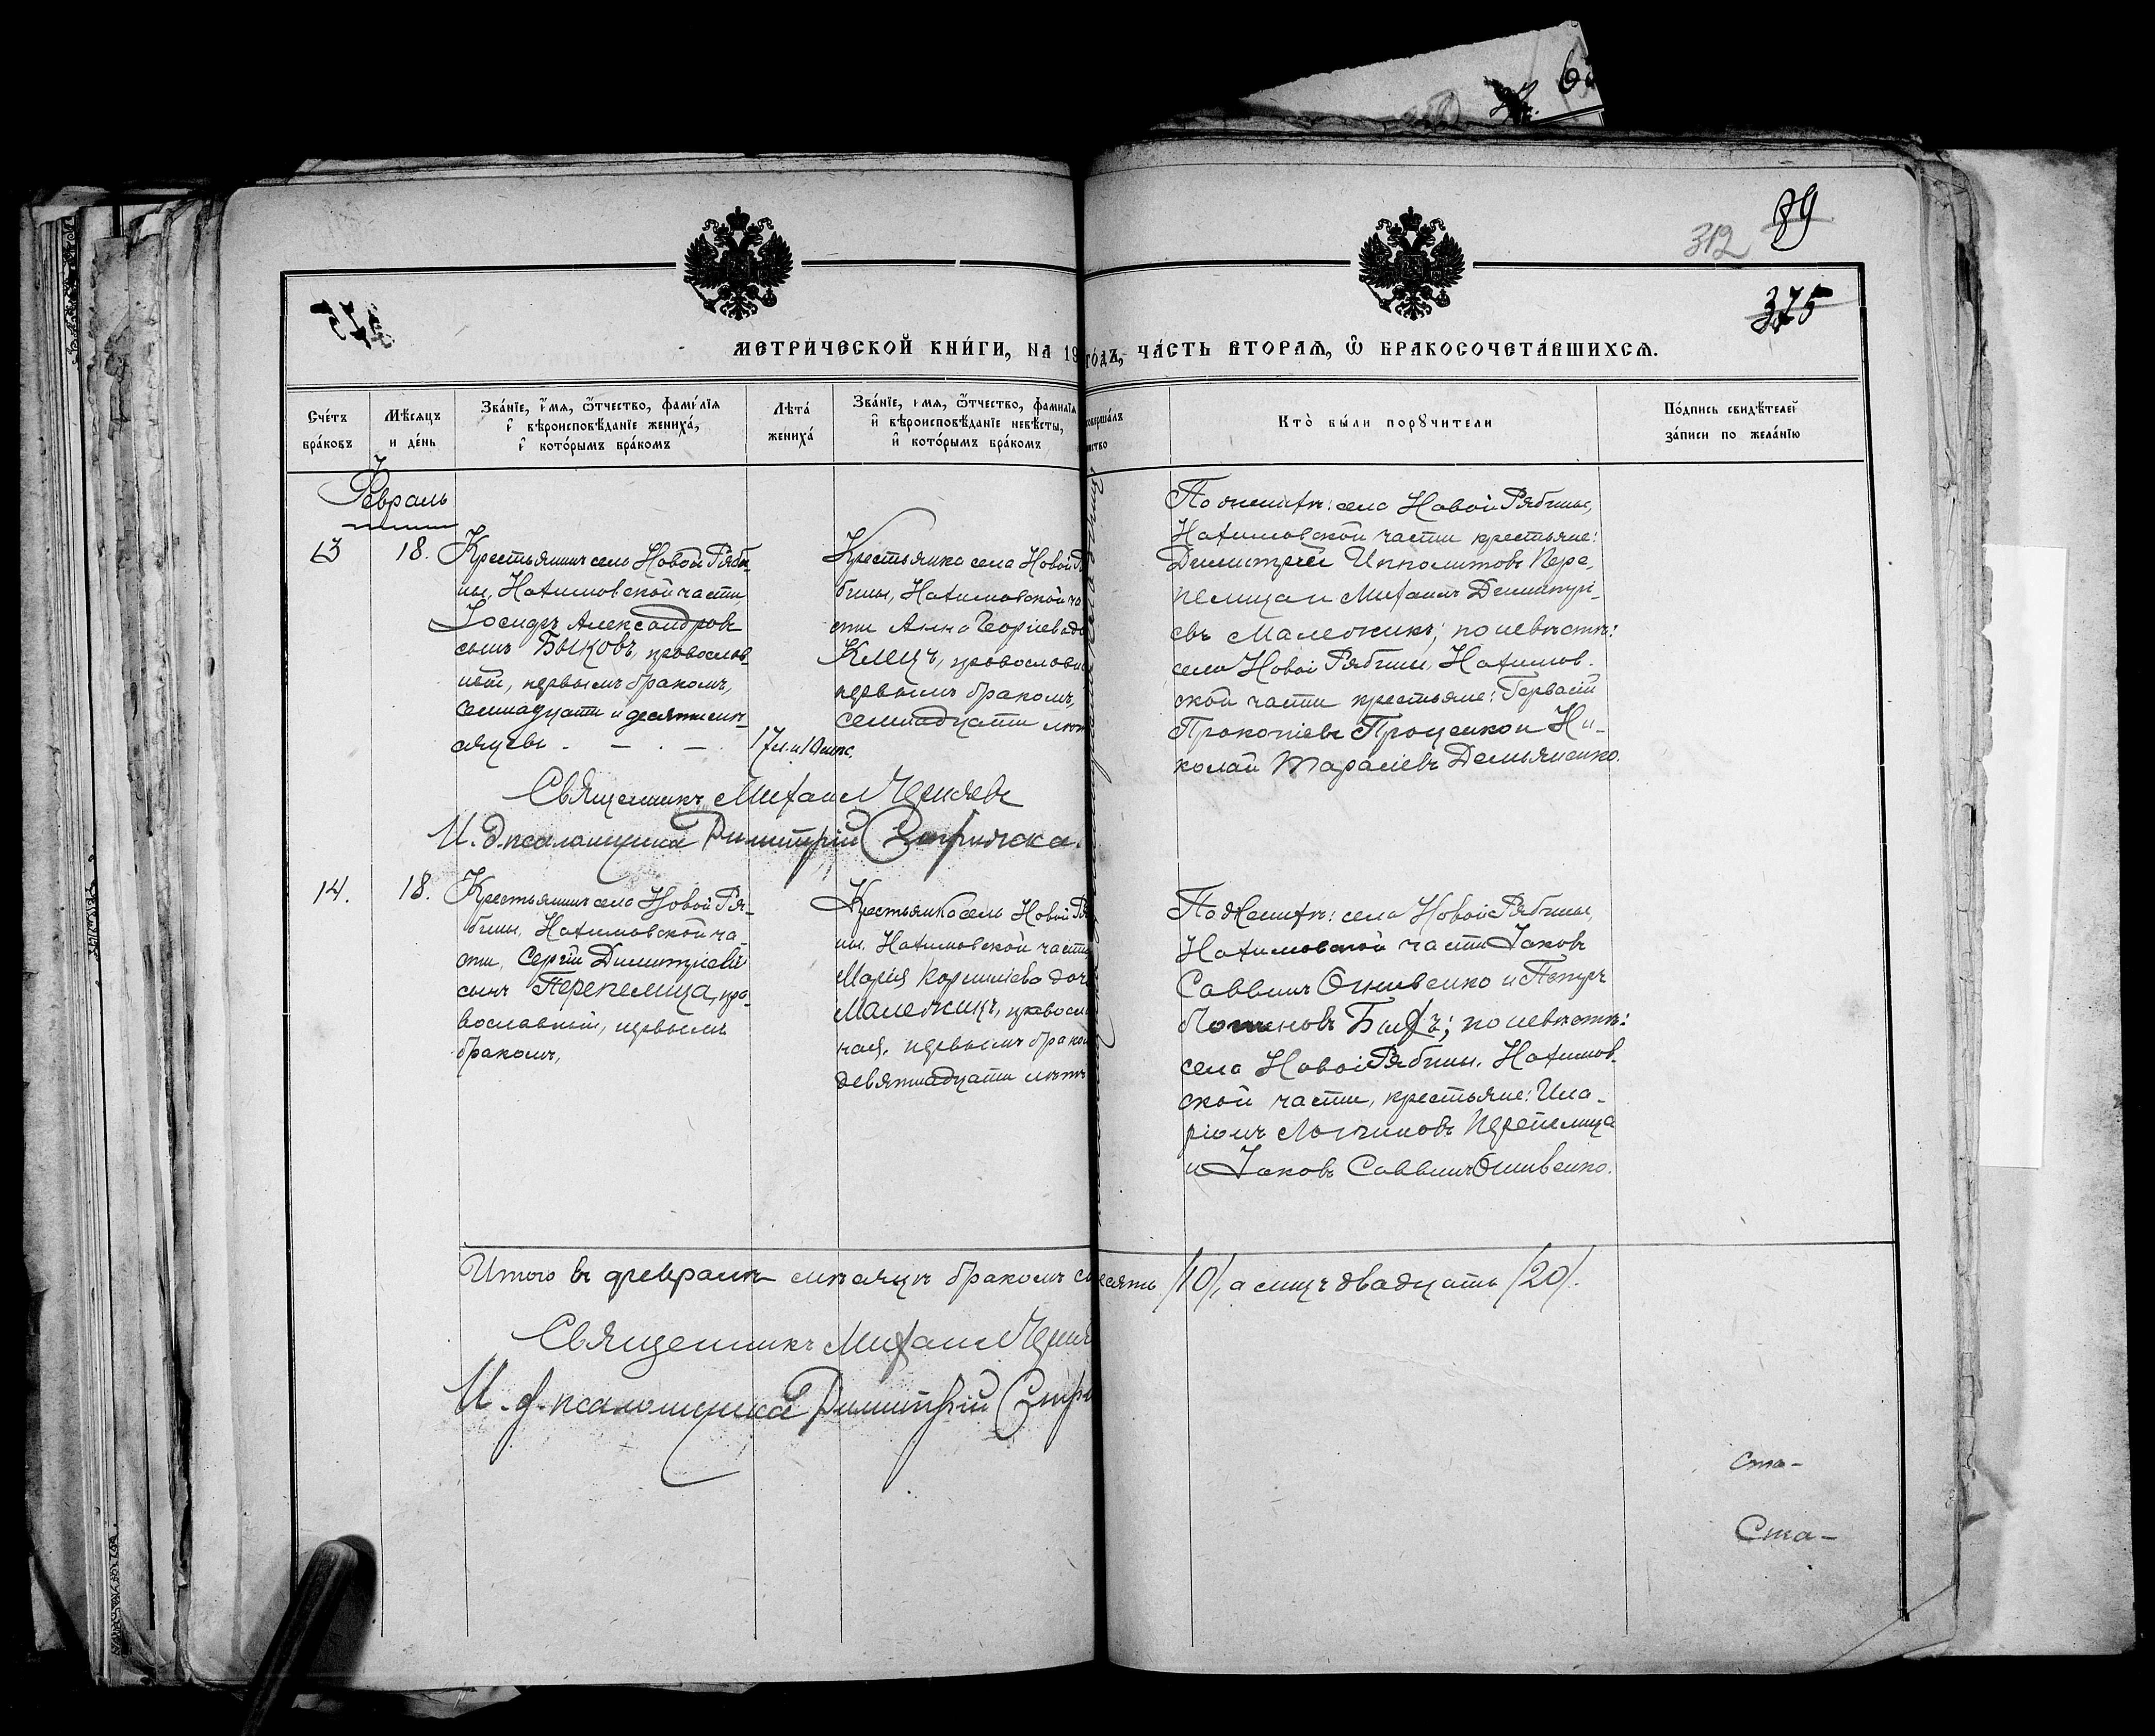 89
312
375
МЕТРИ́ЧЕСКОЙ КНИ́ГИ, НА 19 ГО́ДЪ, ЧА́СТЬ ВТОРАѦ, Ѽ БРАКОСОЧЕТА́ВШИХСѦ.
Сче́тъ бра́ковъ
Мѣ́сяцъ и де́нь
Зва́нїе, и҆́мя, ѻ҆́тчество, фами́лїя
и҆ вѣроисповѣ́данїе жениха́,
и҆ кото́рымъ бра́комъ
Лѣта́ жениха́
Зва́нїе, и҆мя, ѻ҆́тчество, фамилїя
и҆ вѣроисповѣ́данїе невѣ́сты,
и҆ кото́рымъ бра́комъ
Кто̀ бы́ли порꙋчители
По́дпись свидѣ́телей
за́писи по жела́нїю
Февраль
13
18.
Крестьянинъ села Новой Ряби-
ны, Нахимовской части,
Іосифъ Александровъ
сынъ Быковъ, православ-
ный, первымъ бракомъ,
семнадцати и десяти мѣ-
сяцевъ
17 л. и 10 мѣс.
Крестьянка села Новой Ря
бины, Нахимовской ча
сти Анна Георгіева до
Клецъ, православна
первымъ бракомъ,
семнадцати лѣт
По женихѣ: села Новой Рябины,
Нахимовской части крестьяне:
Димитрій Ипполитовъ Пере-
пелица и Михаилъ Димитрі-
евъ Малежикъ; по невѣстѣ:
села Новой Рябины, Нахимов-
ской части крестьяне: Гервасій
Прокопіевъ Проценко и Ни-
колай Тарасіевъ Демьяненко.
Священникъ Михаил
И. д. псаломщика Димитрій
14.
18.
Крестьянинъ села Новой Ря-
бины, Нахимовской ча-
сти, Сергій Димитріевъ
сынъ Перепелица, пра-
вославный, первымъ
бракомъ,
Крестьянка села Новой Ря
ны, Нахимовской части
Марія Корниліева доч
Малежикъ, правосла
ная, первымъ брако
девятнадцати лѣтъ
По женихѣ: села Новой Рябины,
Нахимовской части Іаковъ
Саввинъ Огнивенко и Петръ
по невѣстѣ:
села Новой Рябины, Нахимов-
ской части, крестьяне: Ила-
ріонъ Логиновъ Перепелица
и Іаковъ Саввинъ Огнивенко.
Итого въ февралѣ мѣсяцѣ бракомъ с есять /10/, а лицъ двадцать /20/.
Священникъ Михаил
И. д. псаломщика Димитрій
Ста-
Ста-